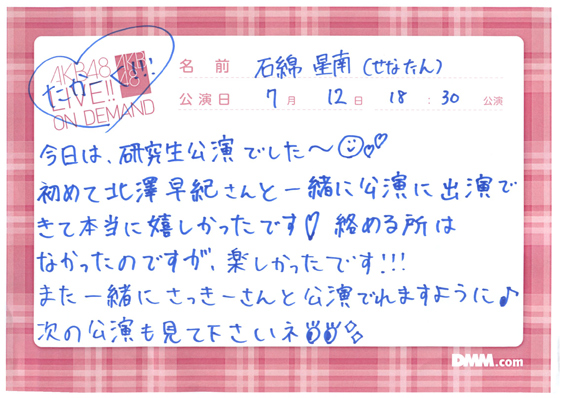 AKB48
LIVE!!
ON DEMAND
AKB
48
名前 石綿 星南 (せなたん)
公演日 7月 12日 18:30 公演
今日は、研究生公演でした〜
初めて北澤早紀さんと一緒に公演に出演で
きて本当に嬉しかったです♡ 絡める所は
なかったのですが、楽しかったです!!!
また一緒にさっきーさんと公演でれますように♪
次の公演も見て下さいネ
DMM.com